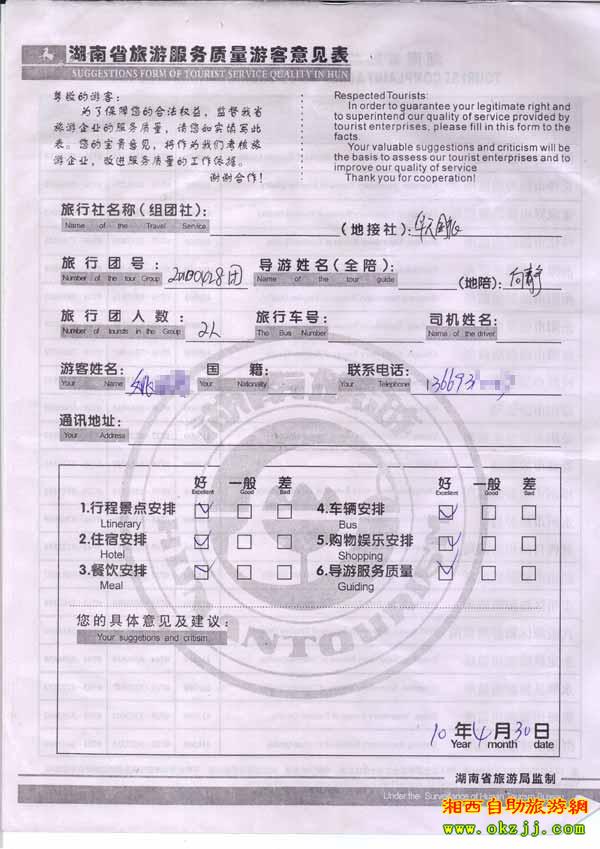 湖南省旅游服务质量游客意见表
SUGGESTIONS FORM OF TOURIST SERVICE QUALITY IN HUN
尊敬的游客：
为了保障您的合法权益，监督我省
旅游企业的服务质量，请您如实填写此
表。您的宝贵意见，将作为我们考核旅
游企业，改进服务质量的工作依据。
谢谢合作！
Respected Tourists:
In order to guarantee your legitimate right and
to superintend our quality of service provided by
tourist enterprises, please fill in this form to the
facts.
Your valuable suggestions and criticism will be
the basis to assess our tourist enterprises and to
improve our quality of service
Thank you for cooperation!
旅行社名称（组团社）： （地接社）：
Name of the Travel Service
旅行团号： 20100428团 导游姓名（全陪）： （地陪）： 向静
Number of the tour Group Name of the tour guide
旅行团人数： 2人 旅行车号： 司机姓名：
Number of tourists in the Group The Bus Number Name of the driver
游客姓名： 姚 国 籍： 联系电话： 136693
Your Name Your Nationality Your Telephone
通讯地址：
Your Address
好 一般 差 好 一般 差
Excellent Good Bad Excellent Good Bad
1.行程景点安排 4.车辆安排
Ltinerary Bus
2.住宿安排 5.购物娱乐安排
Hotel Shopping
3.餐饮安排 6.导游服务质量
Meal Guiding
您的具体意见及建议：
Your suggetions and critism
10 年 4 月 30 日
Year month date
湖南省旅游局监制
Under the Surveillance of Hunan Tourism Bureau
湘西自助旅游網
www.okzjj.com
HUNANTOURISM